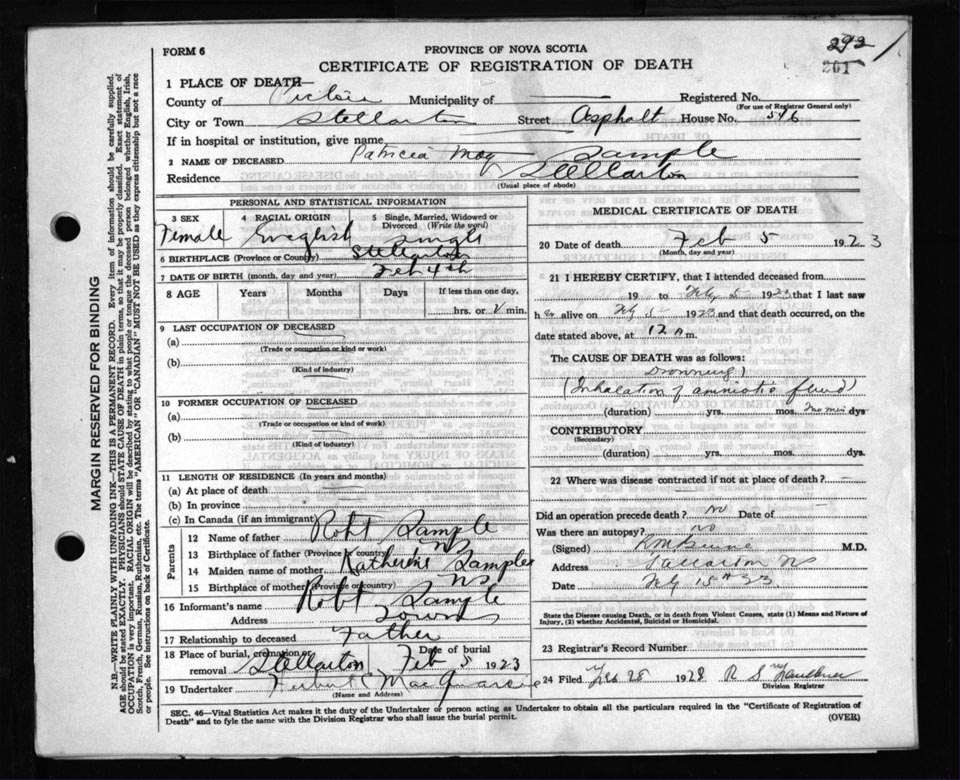 292
261
FORM 6
PROVINCE OF NOVA SCOTIA
CERTIFICATE OF REGISTRATION OF DEATH
1 PLACE OF DEATH—
County of Pictou Municipality of Registered No.
(For use of Registrar General only)
City or Town Stellarton Street Asphalt House No. 546
If in hospital or institution, give name
2 NAME OF DECEASED Patricia May Sample
Residence Stellarton
(Usual place of abode)
PERSONAL AND STATISTICAL INFORMATION
3 SEX 4 RACIAL ORIGIN 5 Single, Married, Widowed or Divorced (Write the word)
Female English single
6 BIRTHPLACE (Province or County) Stellarton
7 DATE OF BIRTH (month, day and year) Feb 4th
8 AGE Years Months Days If less than one day,
hrs. or min.
9 LAST OCCUPATION OF DECEASED
(a)
(Trade or occupation or kind of work)
(b)
(Kind of industry)
10 FORMER OCCUPATION OF DECEASED
(a)
(Trade or occupation or kind of work)
(b)
(Kind of industry)
11 LENGTH OF RESIDENCE (In years and months)
(a) At place of death
(b) In province
(c) In Canada (if an immigrant)
Parents
12 Name of father Robt Sample
13 Birthplace of father (Province or country) NS
14 Maiden name of mother Katherine Sample
15 Birthplace of mother (Province or country) NS
16 Informant's name Robt Sample
Address Town
17 Relationship to deceased Father
18 Place of burial, cremation or removal Stellarton Date of burial Feb 5 1923
19 Undertaker Herbert C
(Name and Address)
MEDICAL CERTIFICATE OF DEATH
20 Date of death Feb 5 1923
(Month, day and year)
21 I HEREBY CERTIFY, that I attended deceased from
19 to Feby 5 1923 that I last saw
h er alive on Feby 5 1923 and that death occurred, on the
date stated above, at 12 a m.
The CAUSE OF DEATH was as follows:
Drowning
(Inhalation of amniotic fluid)
(duration) yrs. mos. dys
CONTRIBUTORY
(Secondary)
(duration) yrs. mos. dys.
22 Where was disease contracted if not at place of death?
Did an operation precede death? No Date of
Was there an autopsy? no
(Signed) M.D.
Address Stellarton NS
Date Feby 15th 23
State the Disease causing Death, or in death from Violent Causes, state (1) Means and Nature of
Injury, (2) whether Accidental, Suicidal or Homicidal.
23 Registrar's Record Number
24 Filed Feb 28 1928 R S
Division Registrar
SEC. 46—Vital Statistics Act makes it the duty of the Undertaker or person acting as Undertaker to obtain all the particulars required in the "Certificate of Registration of
Death" and to fyle the same with the Division Registrar who shall issue the burial permit. (OVER)
MARGIN RESERVED FOR BINDING
N.B.—WRITE PLAINLY WITH UNFADING INK—THIS IS A PERMANENT RECORD. Every item of information should be carefully supplied.
AGE should be stated EXACTLY. PHYSICIANS should STATE CAUSE OF DEATH in plain terms, so that it may be properly classified. Exact statement of
OCCUPATION is very important. RACIAL ORIGIN will be described by stating to what people or tongue the deceased person belonged whether English, Irish,
Scotch, French, German, Russian, Ruthenian, etc. The terms "AMERICAN" OR "CANADIAN" MUST NOT BE USED as they express citizenship but not a race
or people. See instructions on back of Certificate.